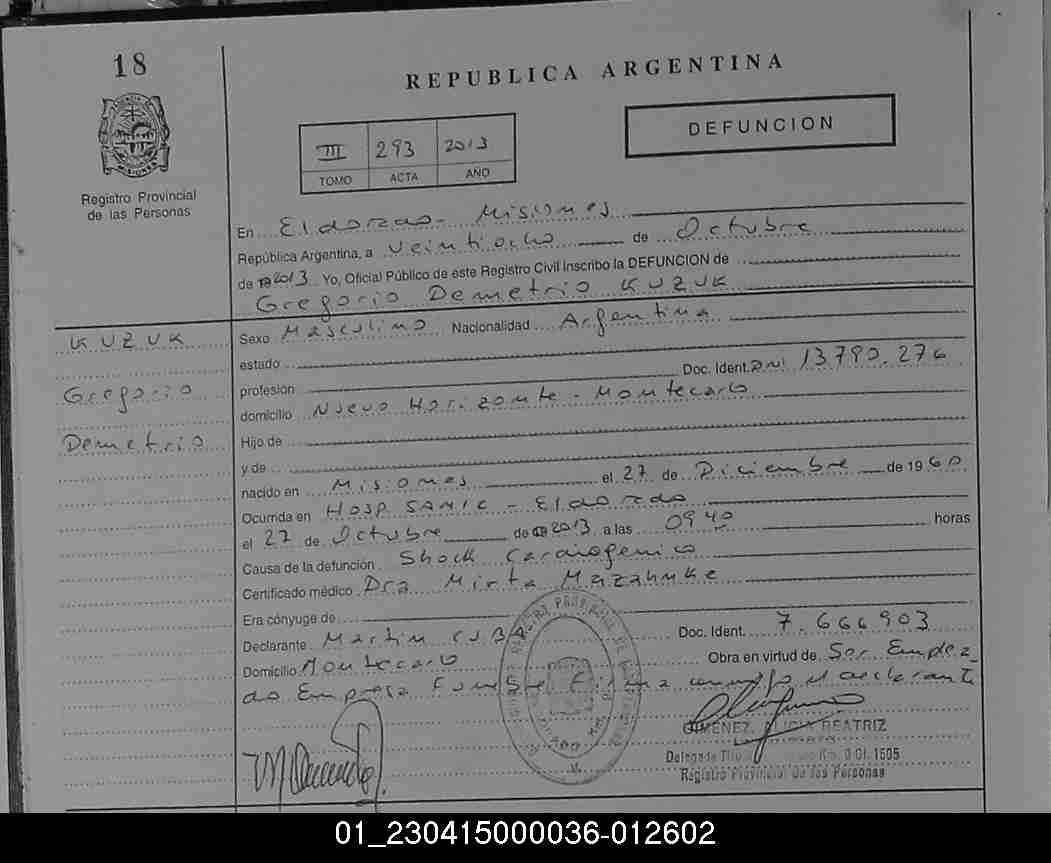 18
REPUBLICA ARGENTINA
DEFUNCION
III 293 2013
TOMO ACTA AÑO
Registro Provincial
de las Personas
En Eldorado - Misiones
República Argentina, a Veintiocho de Octubre
de 2013 Yo, Oficial Público de este Registro Civil inscribo la DEFUNCION de
Gregorio Demetrio KUZUK
KUZUK
Gregorio
Demetrio
Sexo Masculino Nacionalidad Argentina
estado
profesión Doc. Ident. DNI 13.790.276
domicilio Nuevo Horizonte - Montecarlo
Hijo de
y de
nacido en Misiones el 27 de Diciembre de 1960
Ocurrida en HOSP SAMIC - Eldorado
el 27 de Octubre de 2013 a las 0940 horas
Causa de la defunción Shock Cardiogenico
Certificado médico Dra Mirta
Era cónyuge de
Declarante Martin Doc. Ident. 7.666903
Domicilio Montecarlo Obra en virtud de Ser Emplea_
do Empresa Funebre Firma conmigo el declarante
GIMENEZ, ALICIA BEATRIZ
Registro Provincial de las Personas
01_230415000036-012602